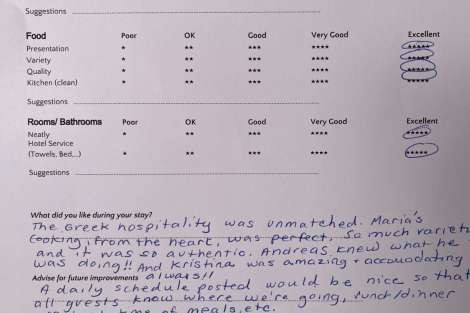 Suggestions
Food Poor OK Good Very Good Excellent
Presentation * ** *** **** *****
Variety * ** *** **** *****
Quality * ** *** **** *****
Kitchen (clean) * ** *** **** *****
Suggestions
Rooms/ Bathrooms Poor OK Good Very Good Excellent
Neatly * ** *** **** *****
Hotel Service
(Towels, Bed,..) * ** *** **** *****
Suggestions
What did you like during your stay?
The Greek hospitality was unmatched. Maria's
cooking, from the heart, was perfect, so much variety
and it was so authentic. Andreas knew what he
was doing!! And Kristina was amazing + accomodating
Advise for future improvements always!!
A daily schedule posted would be nice so that
all guests know where we're going, lunch/dinner
time of meals, etc.